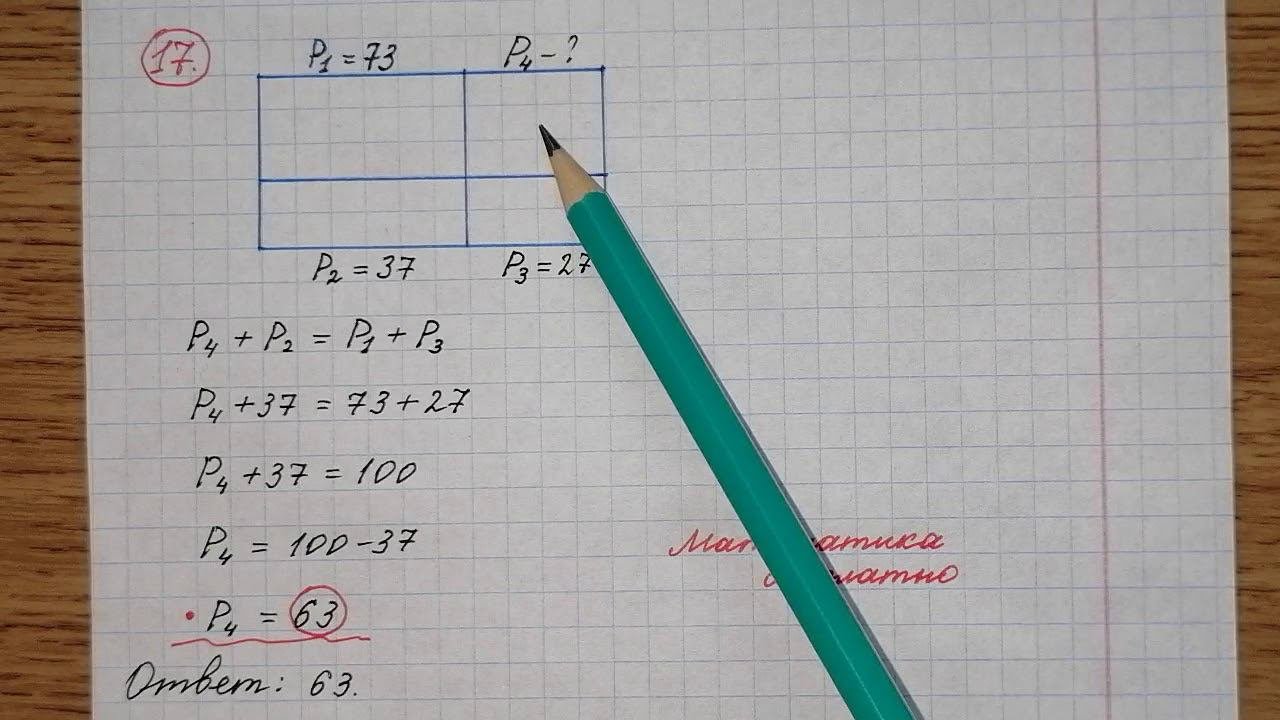 17.
P₁ = 73 P₄ - ?
P₂ = 37 P₃ = 27
P₄ + P₂ = P₁ + P₃
P₄ + 37 = 73 + 27
P₄ + 37 = 100
P₄ = 100 - 37
• P₄ = 63
Ответ: 63.